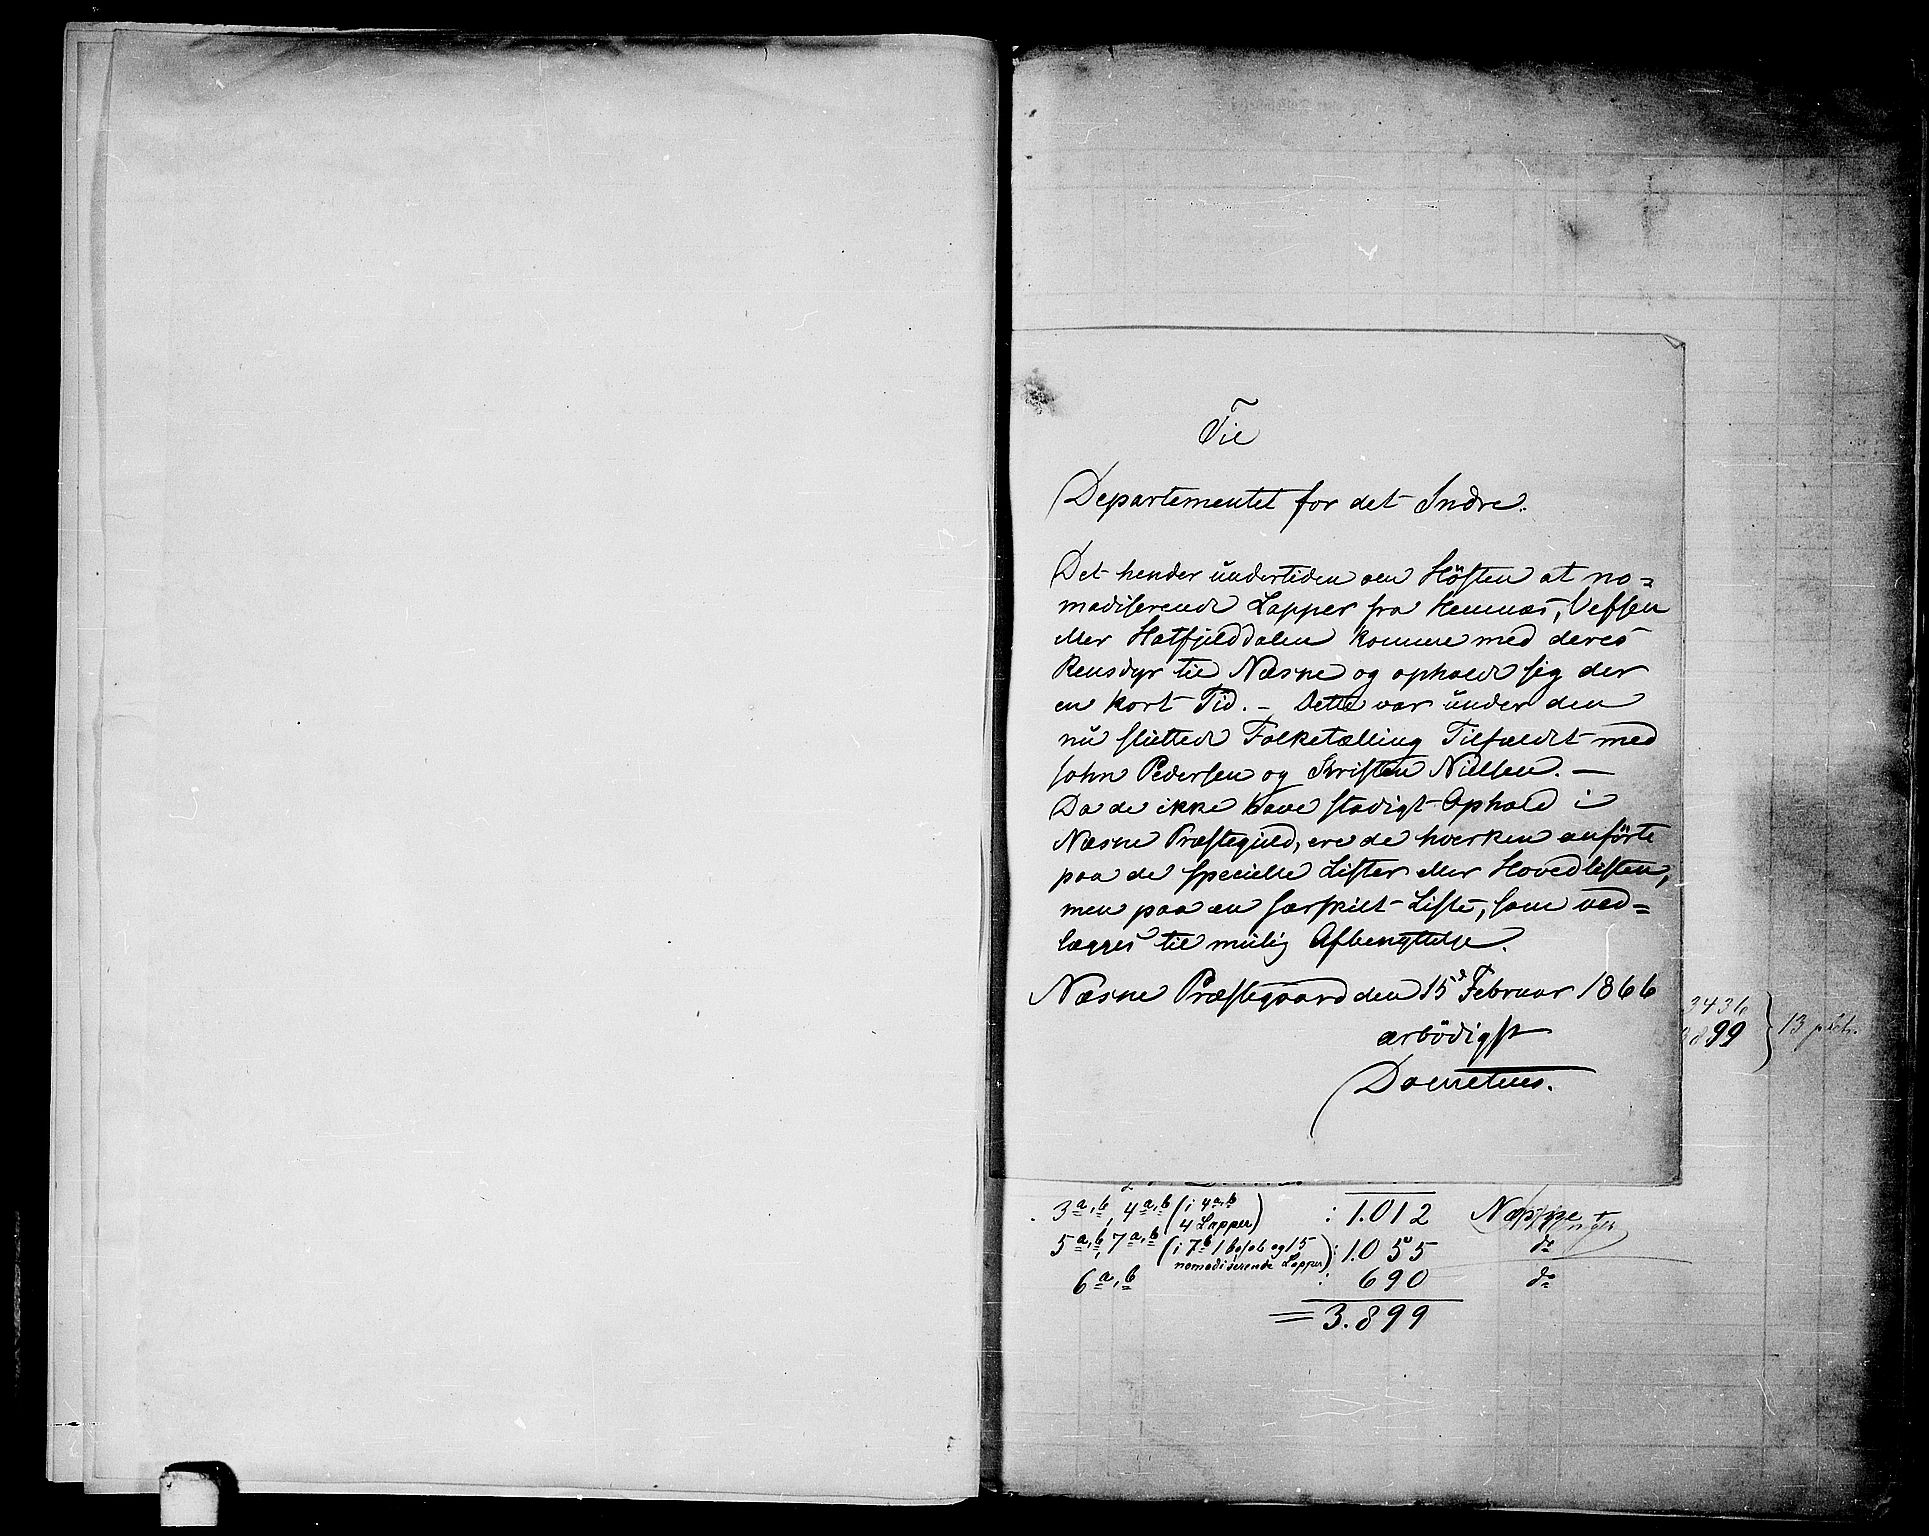 Til
Departementet for det Indre.
Det hender undertiden om Høsten at no=
madiserende Lapper fra Hemnæs, Vefsen
eller Hatfjelddalen komme med deres
Rensdyr til Næsne og opholde sig der
en kort Tid. – Dette var under den
nu sluttede Folketælling Tilfældet med
John Pedersen og Kristen Nielsen. –
Da de ikke have stadigt Ophold i
Næsne Præstegjeld, ere de hverken anførte
paa de specielle Lister eller Hovedlisten,
men paa en særskilt Liste, som ved=
lægges til mulig Afbenyttelse.
Næsne Præstegaard den 15d Februar 1866
ærbödigst
3436
3899 } 13 pkts.
3 a,b, 4 a,b (i 4 a,b 4 Lapper) : 1.012 Næppe
5 a,b, 7 a,b (i 7 b 1 bofast og 15 nomadiserende Lapper) : 1.055 do
6 a,b : 690 do
= 3.899